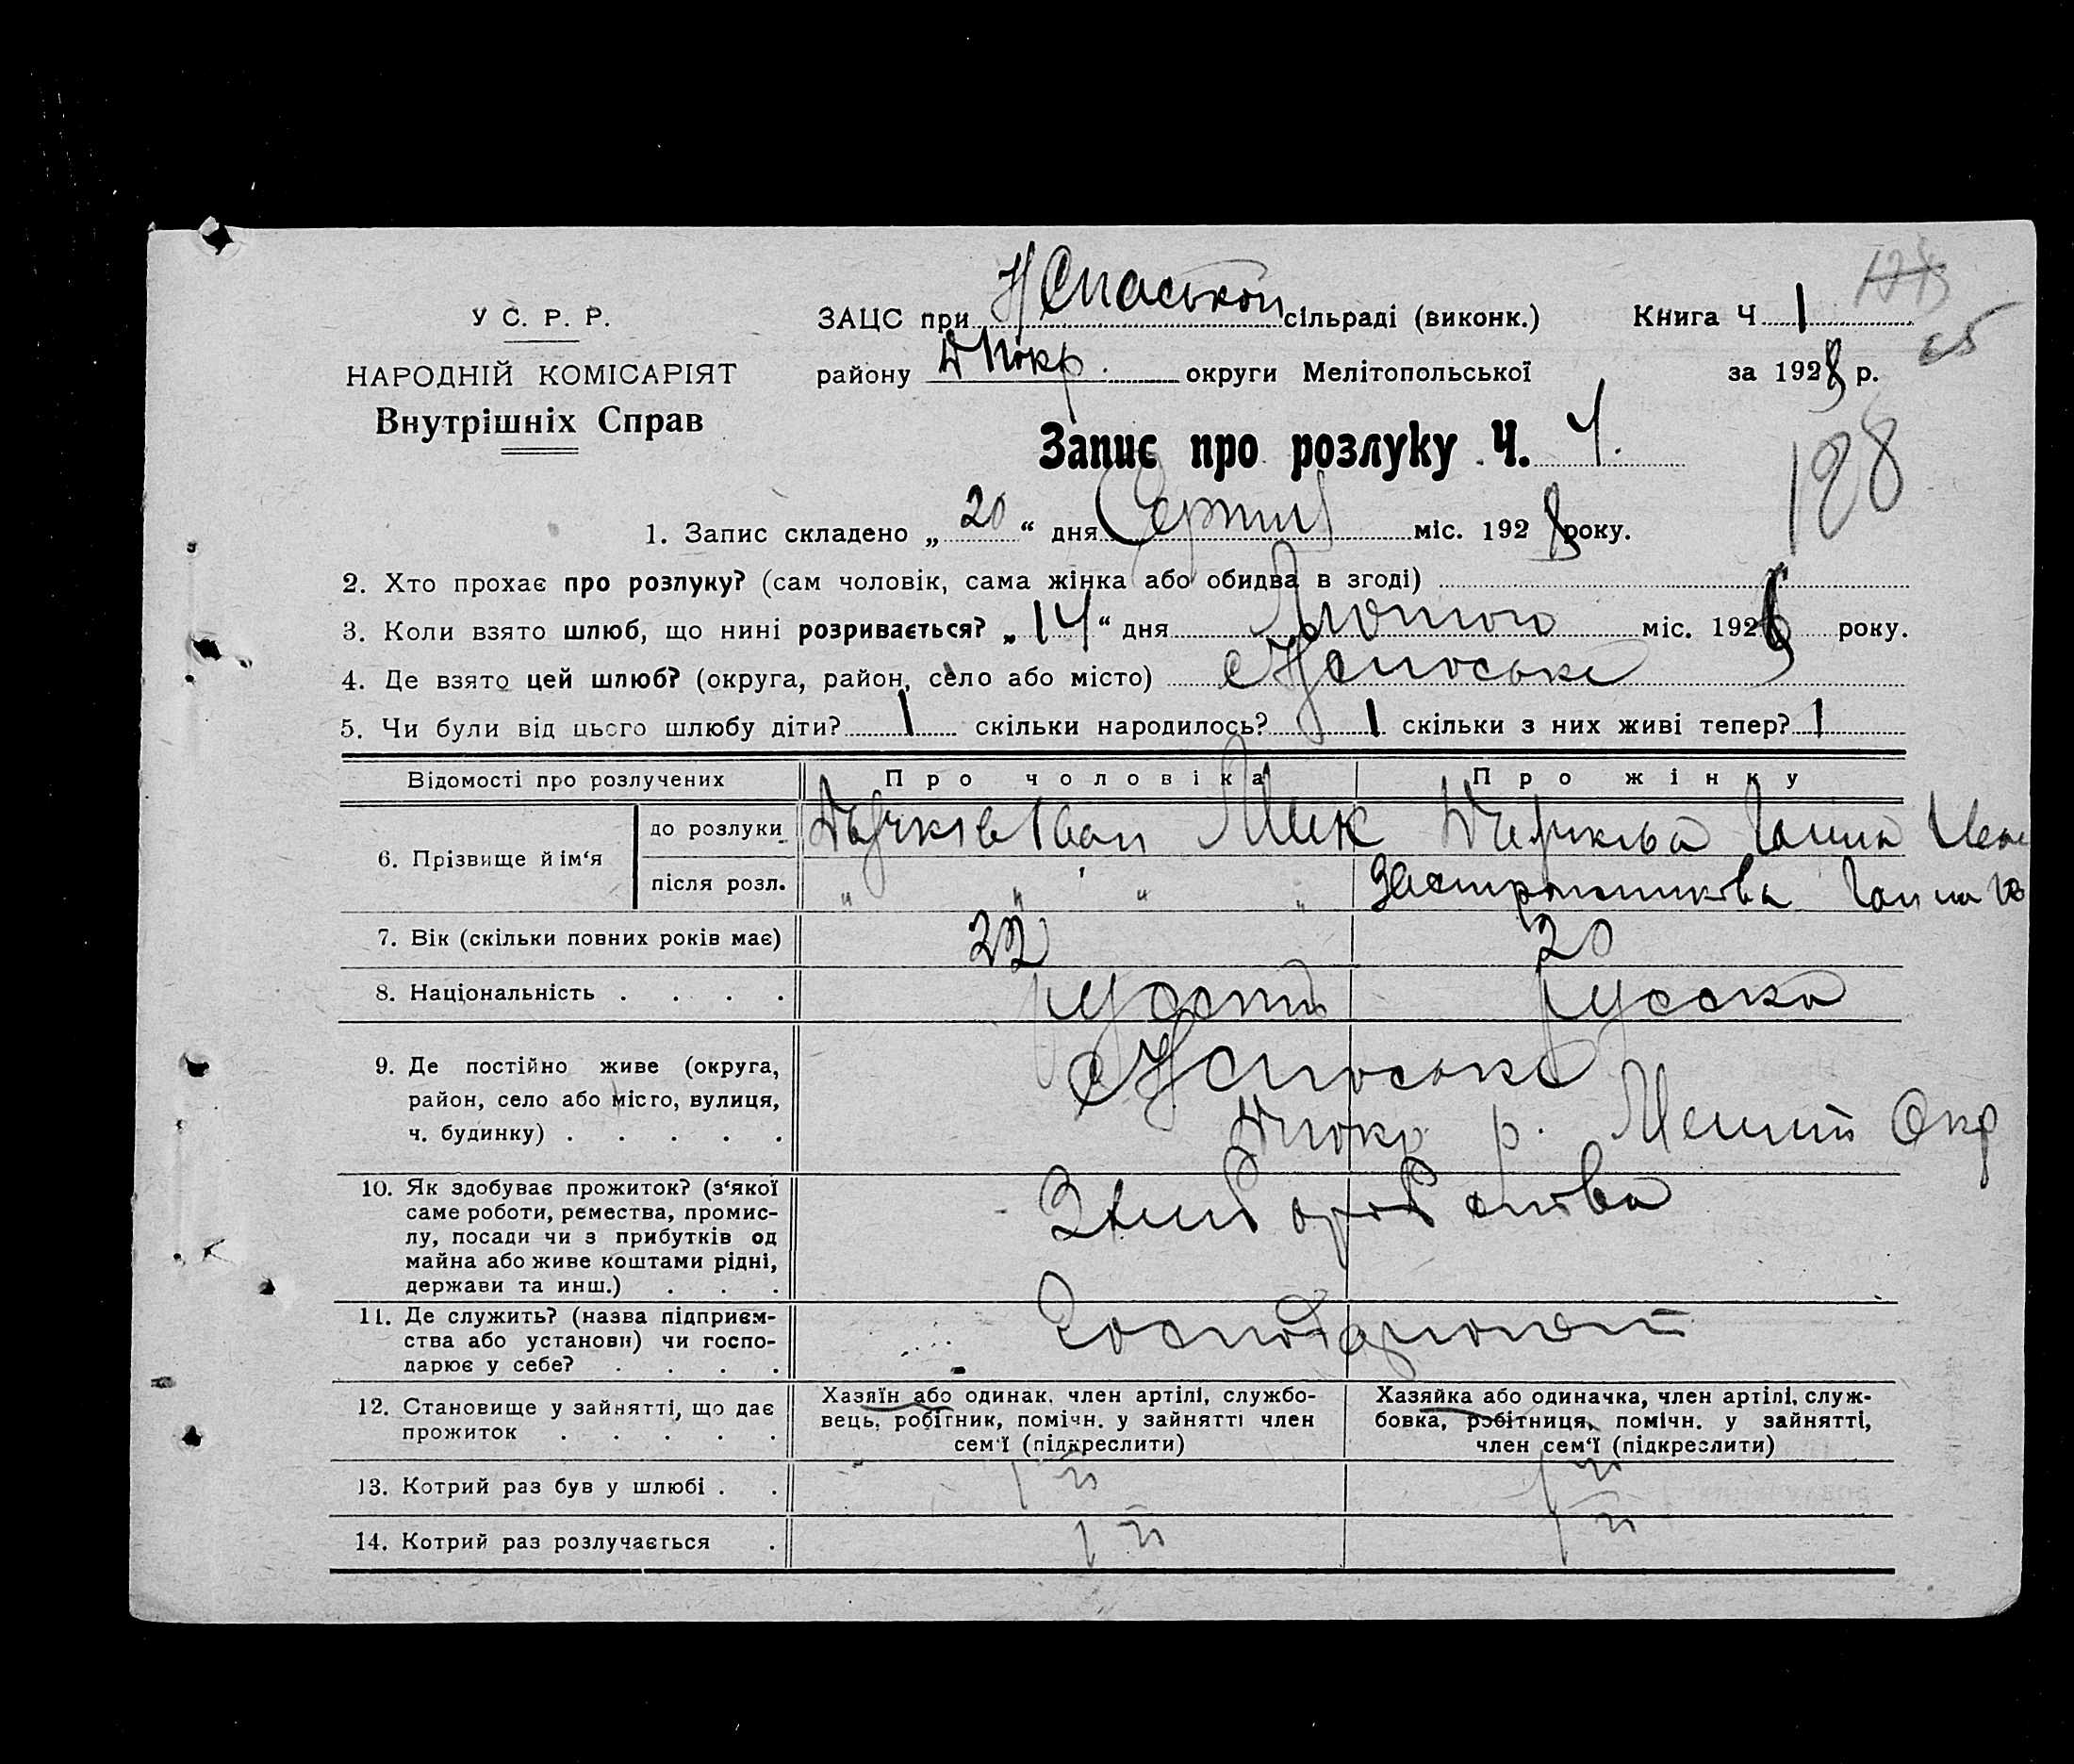 У С. Р. Р.
НАРОДНІЙ КОМІСАРІЯТ
Внутрішніх Справ
ЗАЦС при Н Спаській сільраді (виконк.) Книга Ч 1
району округи Мелітопольської за 1928 р.
65
Запис про розлуку Ч. 4.
128
1. Запис складено „ 20 “ дня Серпня міс. 1928 року.
2. Хто прохає про розлуку? (сам чоловік, сама жінка або обидва в згоді)
3. Коли взято шлюб, що нині розривається? „ 14 “ дня Лютого міс. 1926 року.
4. Де взято цей шлюб? (округа, район, село або місто) с Н Спаське
5. Чи були від цього шлюбу діти? 1 скільки народилось? 1 скільки з них живі тепер? 1
Відомості про розлучених Про чоловіка Про жінку
6. Прізвище й ім‘я до розлуки Іван Мик Ганна
після розл. „ „ „ „ Ганна
7. Вік (скільки повних років має) 22 20
8. Національність . . . . русский русска
9. Де постійно живе (округа, район, село або місто, вулиця, ч. будинку) . . . . . с Н Спаське
р. Меліт Окр
10. Як здобуває прожиток? (з‘якої саме роботи, ремества, промислу, посади чи з прибутків од майна або живе коштами рідні, держави та инш.) . . . Хліборобства
11. Де служить? (назва підприємства або установи) чи господарює у себе? . . . . Господарюють
12. Становище у зайнятті, що дає прожиток . . . . . Хазяїн або одинак, член артілі, службовець, робітник, помічн. у зайнятті член сем‘ї (підкреслити) Хазяйка або одиначка, член артілі, службовка, робітниця, помічн. у зайнятті, член сем‘ї (підкреслити)
13. Котрий раз був у шлюбі . . 1 й 1 й
14. Котрий раз розлучається . 1 й 1 й